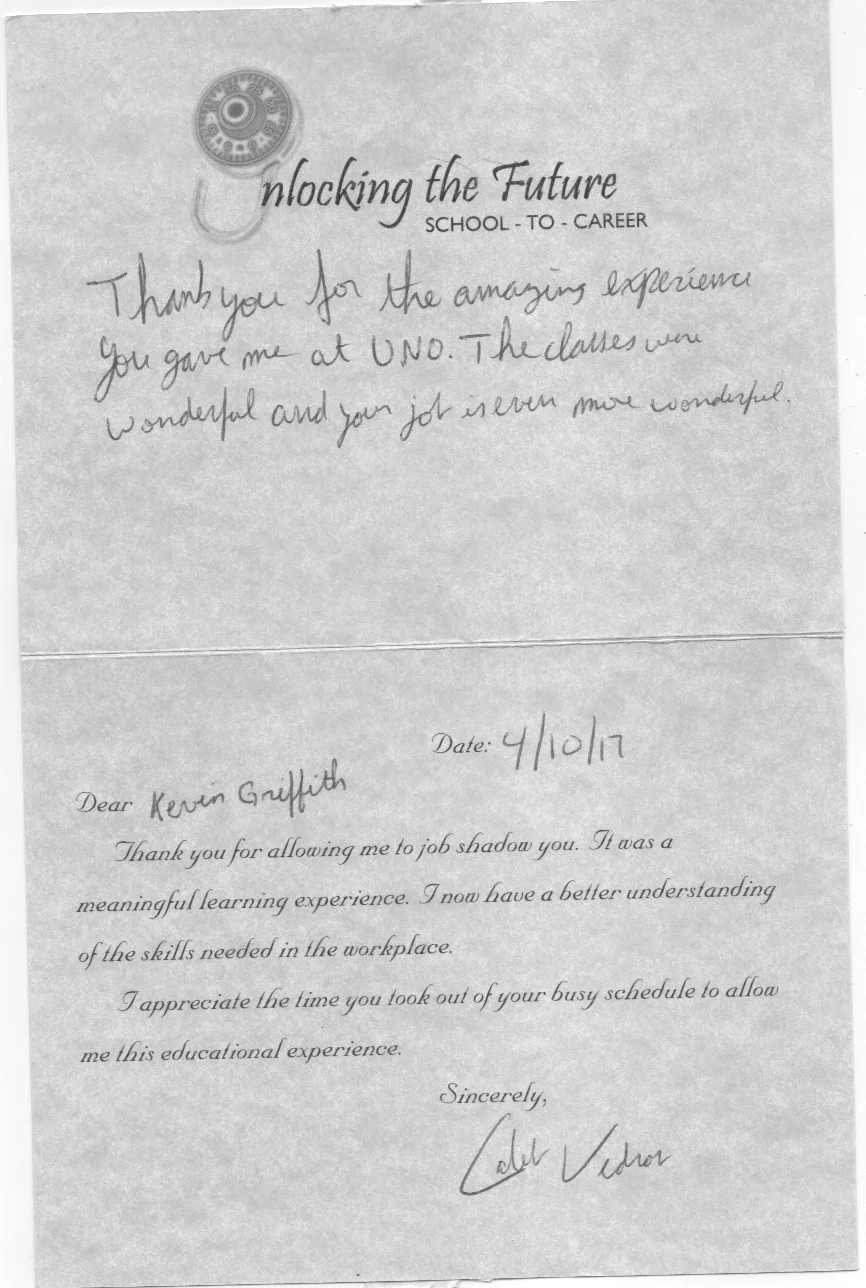 Unlocking the Future
SCHOOL - TO - CAREER
Thank you for the amazing experience
you gave me at UNO. The classes were
wonderful and your job is even more wonderful.
Date: 4/10/17
Dear Kevin Griffith
Thank you for allowing me to job shadow you. It was a
meaningful learning experience. I now have a better understanding
of the skills needed in the workplace.
I appreciate the time you took out of your busy schedule to allow
me this educational experience.
Sincerely,
Caleb